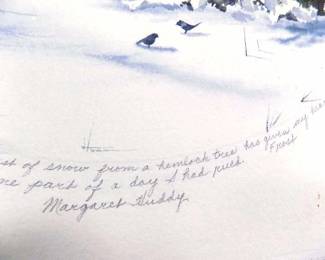 of snow from a hemlock tree has given my
part of a day I had rued.
Frost
Margaret Huddy